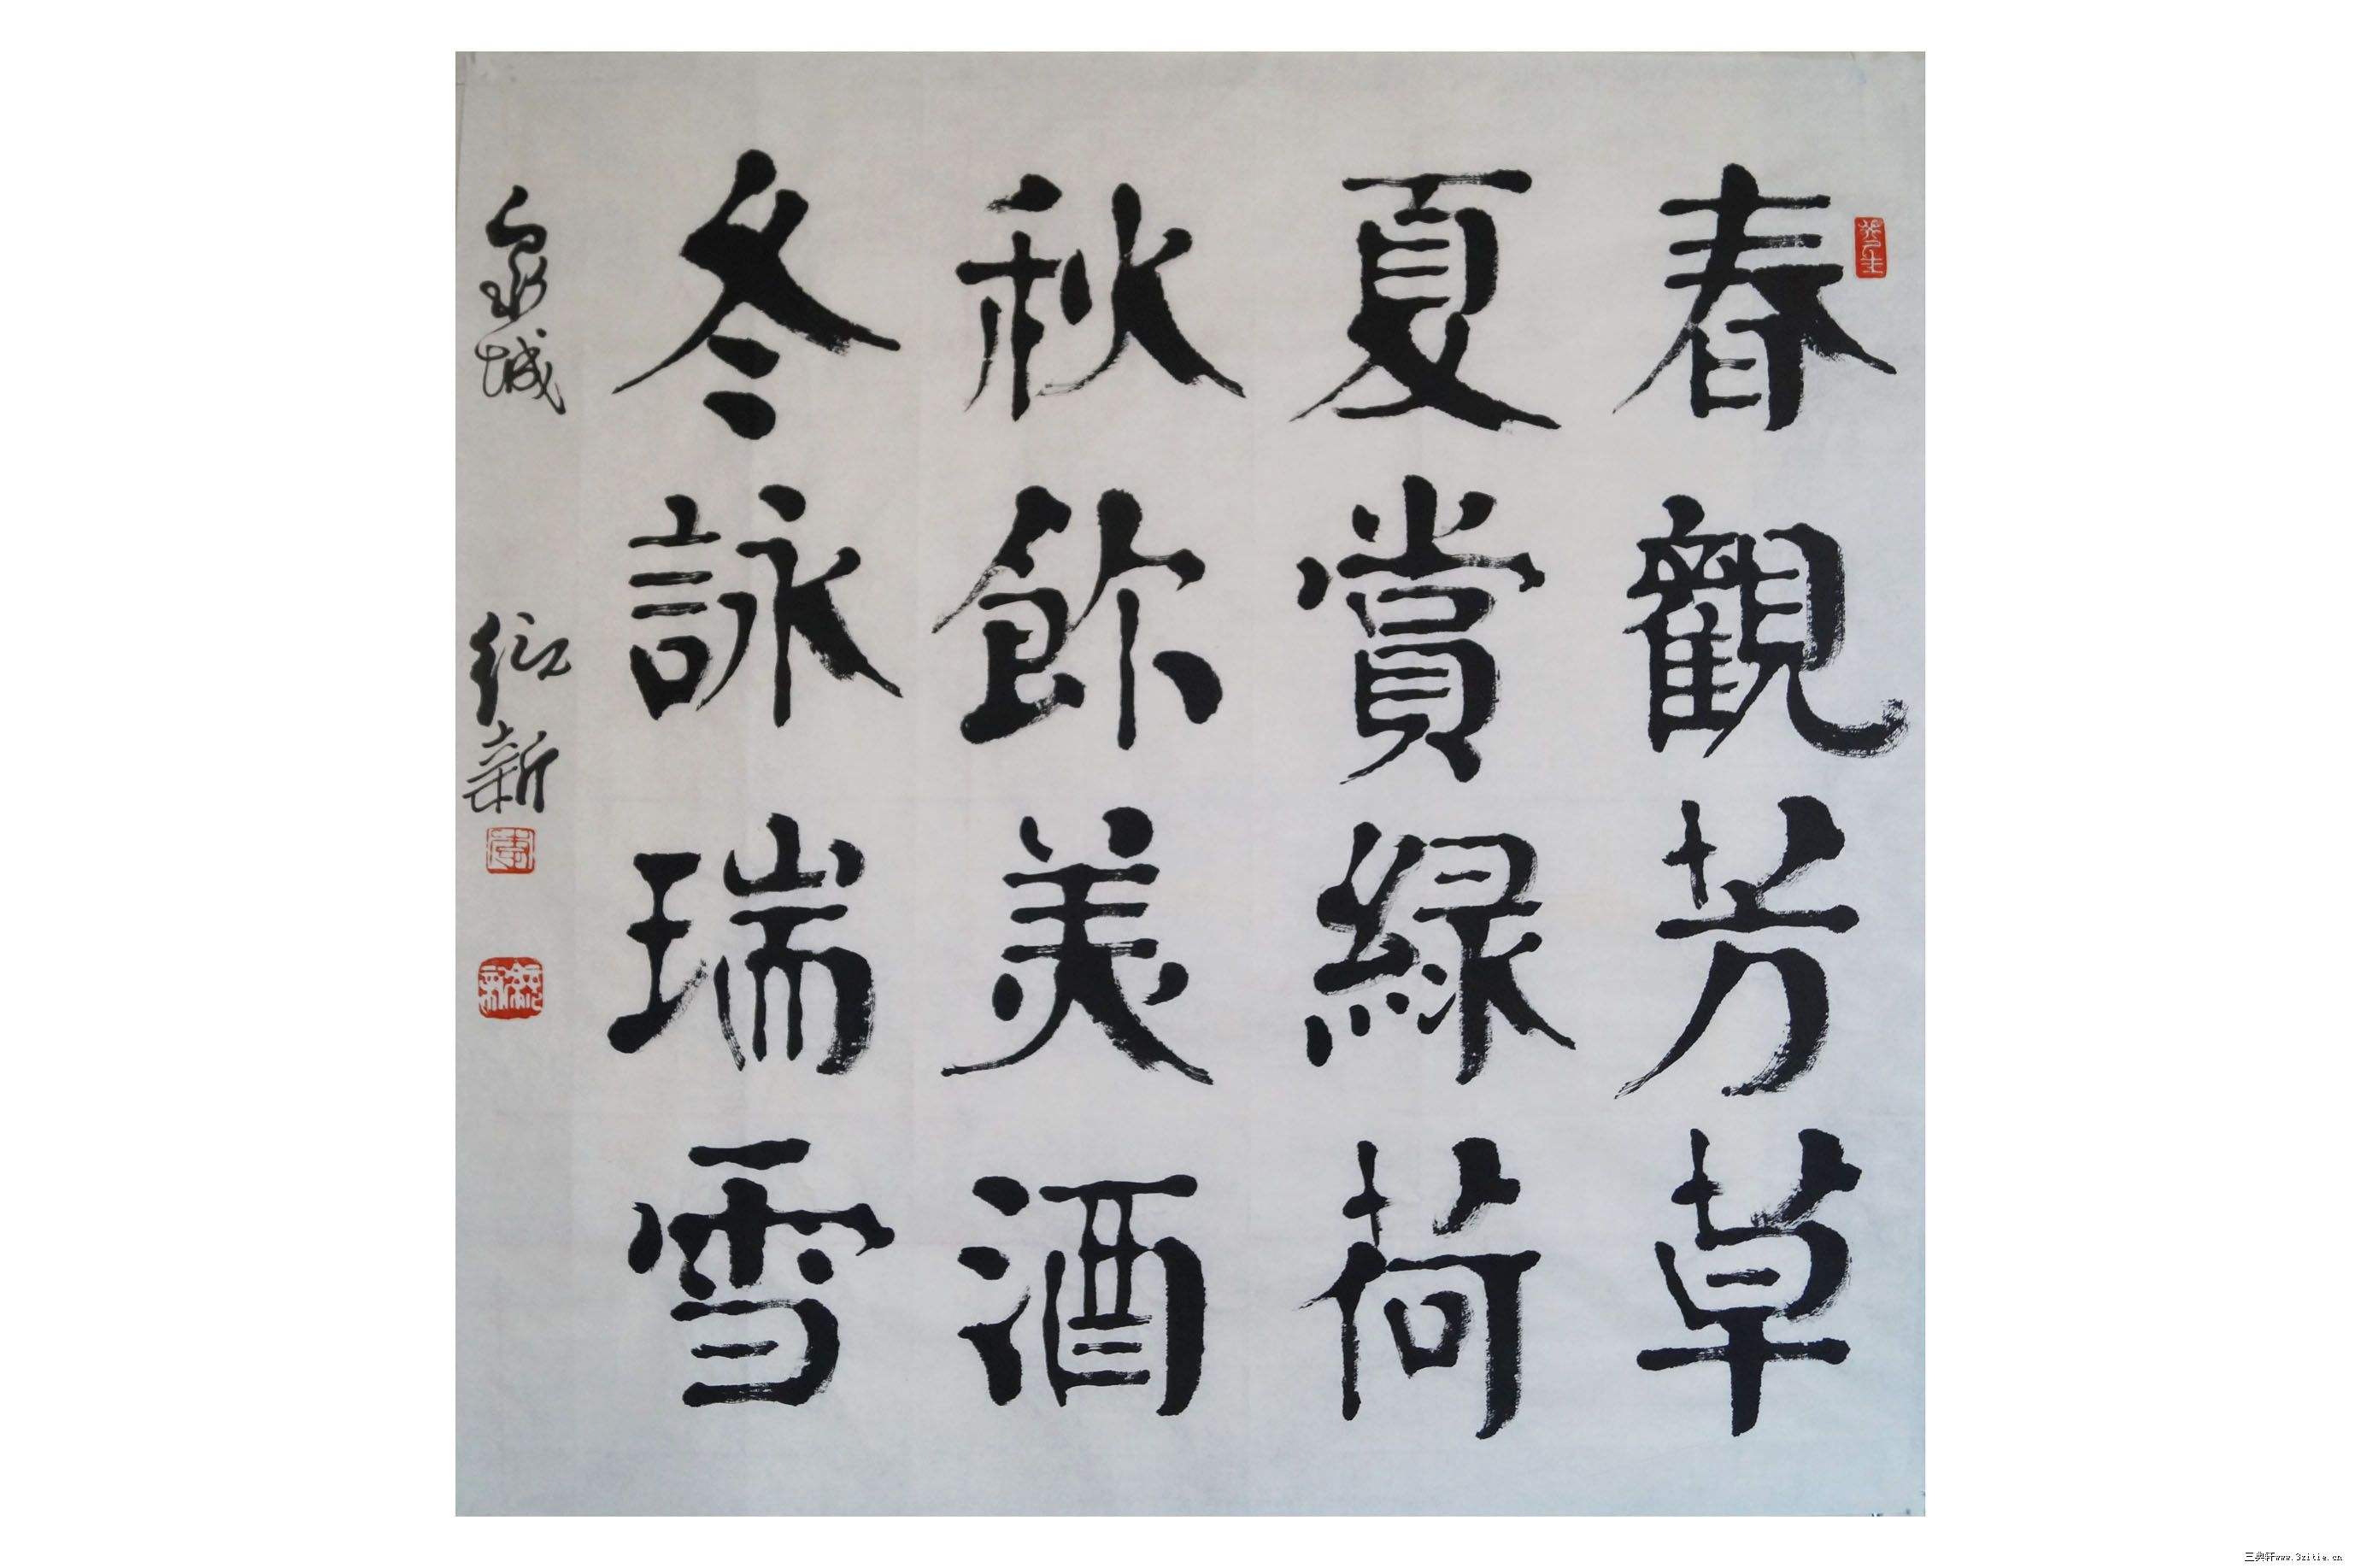 春觀芳草
夏賞緑荷
秋飲美酒
冬詠瑞雪
泉城 紅新
三典轩www.3zitie.cn